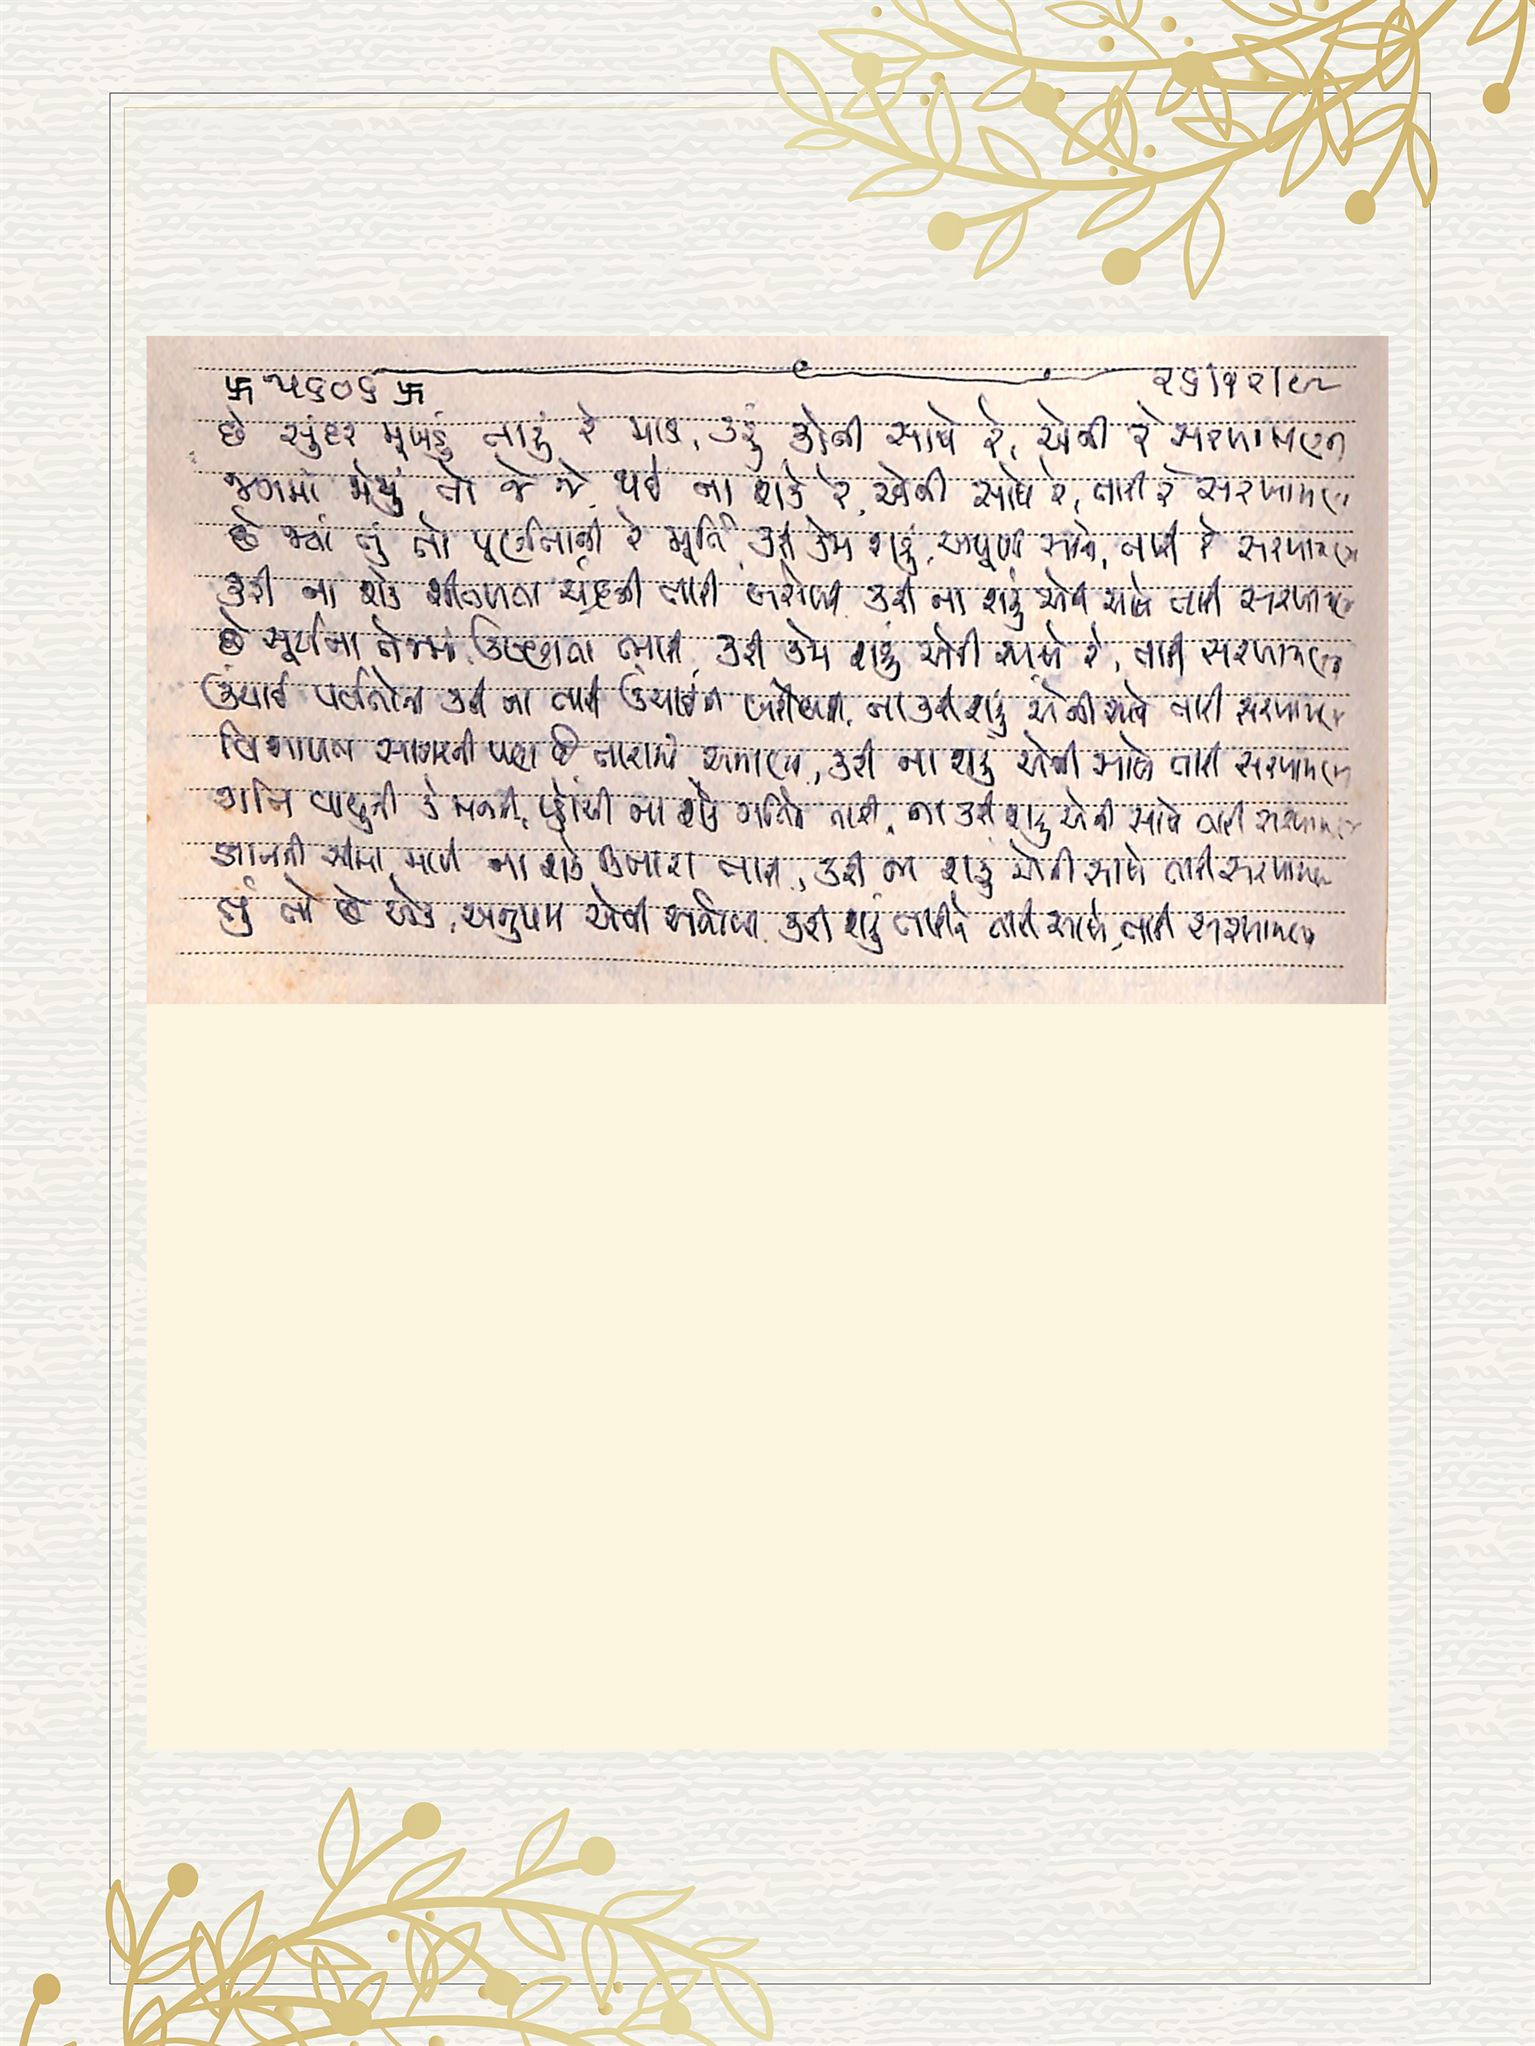 卐 ૫૬૦૬ 卐 ૨૬/૧૨/૯૫
છે સુંદર મુખડું તારું રે માત, કરું કોની સાથે રે, એની રે સરખામણી
જગમાં મેળું તો જે જે, થઈ ના શકે રે, એની સાથે રે, તારી રે સરખામણી
છે જ્યાં તું તો પૂર્ણતાની રે મૂર્તિ, કરી કેમ શકું, અપૂર્ણ સાથે, તારી રે સરખામણી
કરી ના શકે શીતળતા ચંદ્રની તારી બરોબરી, કરી ના શકું એની સાથે તારી સરખામણી
છે સૂર્યના તેજમાં ઉષ્ણતા ભારી, કરી કેમ શકું એની સાથે રે, તારી સરખામણી
ઊંચાઈ પર્વતોની કરે ના તારી ઊંચાઈની બરોબરી, ના કરી શકું એની સાથે તારી સરખામણી
વિશાળતા સાગરની પણ છે તારામાં સમાણી, કરી ના શકું એની સાથે તારી સરખામણી
ગતિ વાયુની કે મનની, પ્હોંચી ના શકે ગતિને તારી, ના કરી શકું એની સાથે તારી સરખામણી
જ્ઞાનની સીમા માપી ના શકે સીમા તારી, કરી ના શકું એની સાથે તારી સરખામણી
તું તો છે એક, અનુપમ એવી કરી શકું તારીને તારી સાથે, તારી સરખામણી